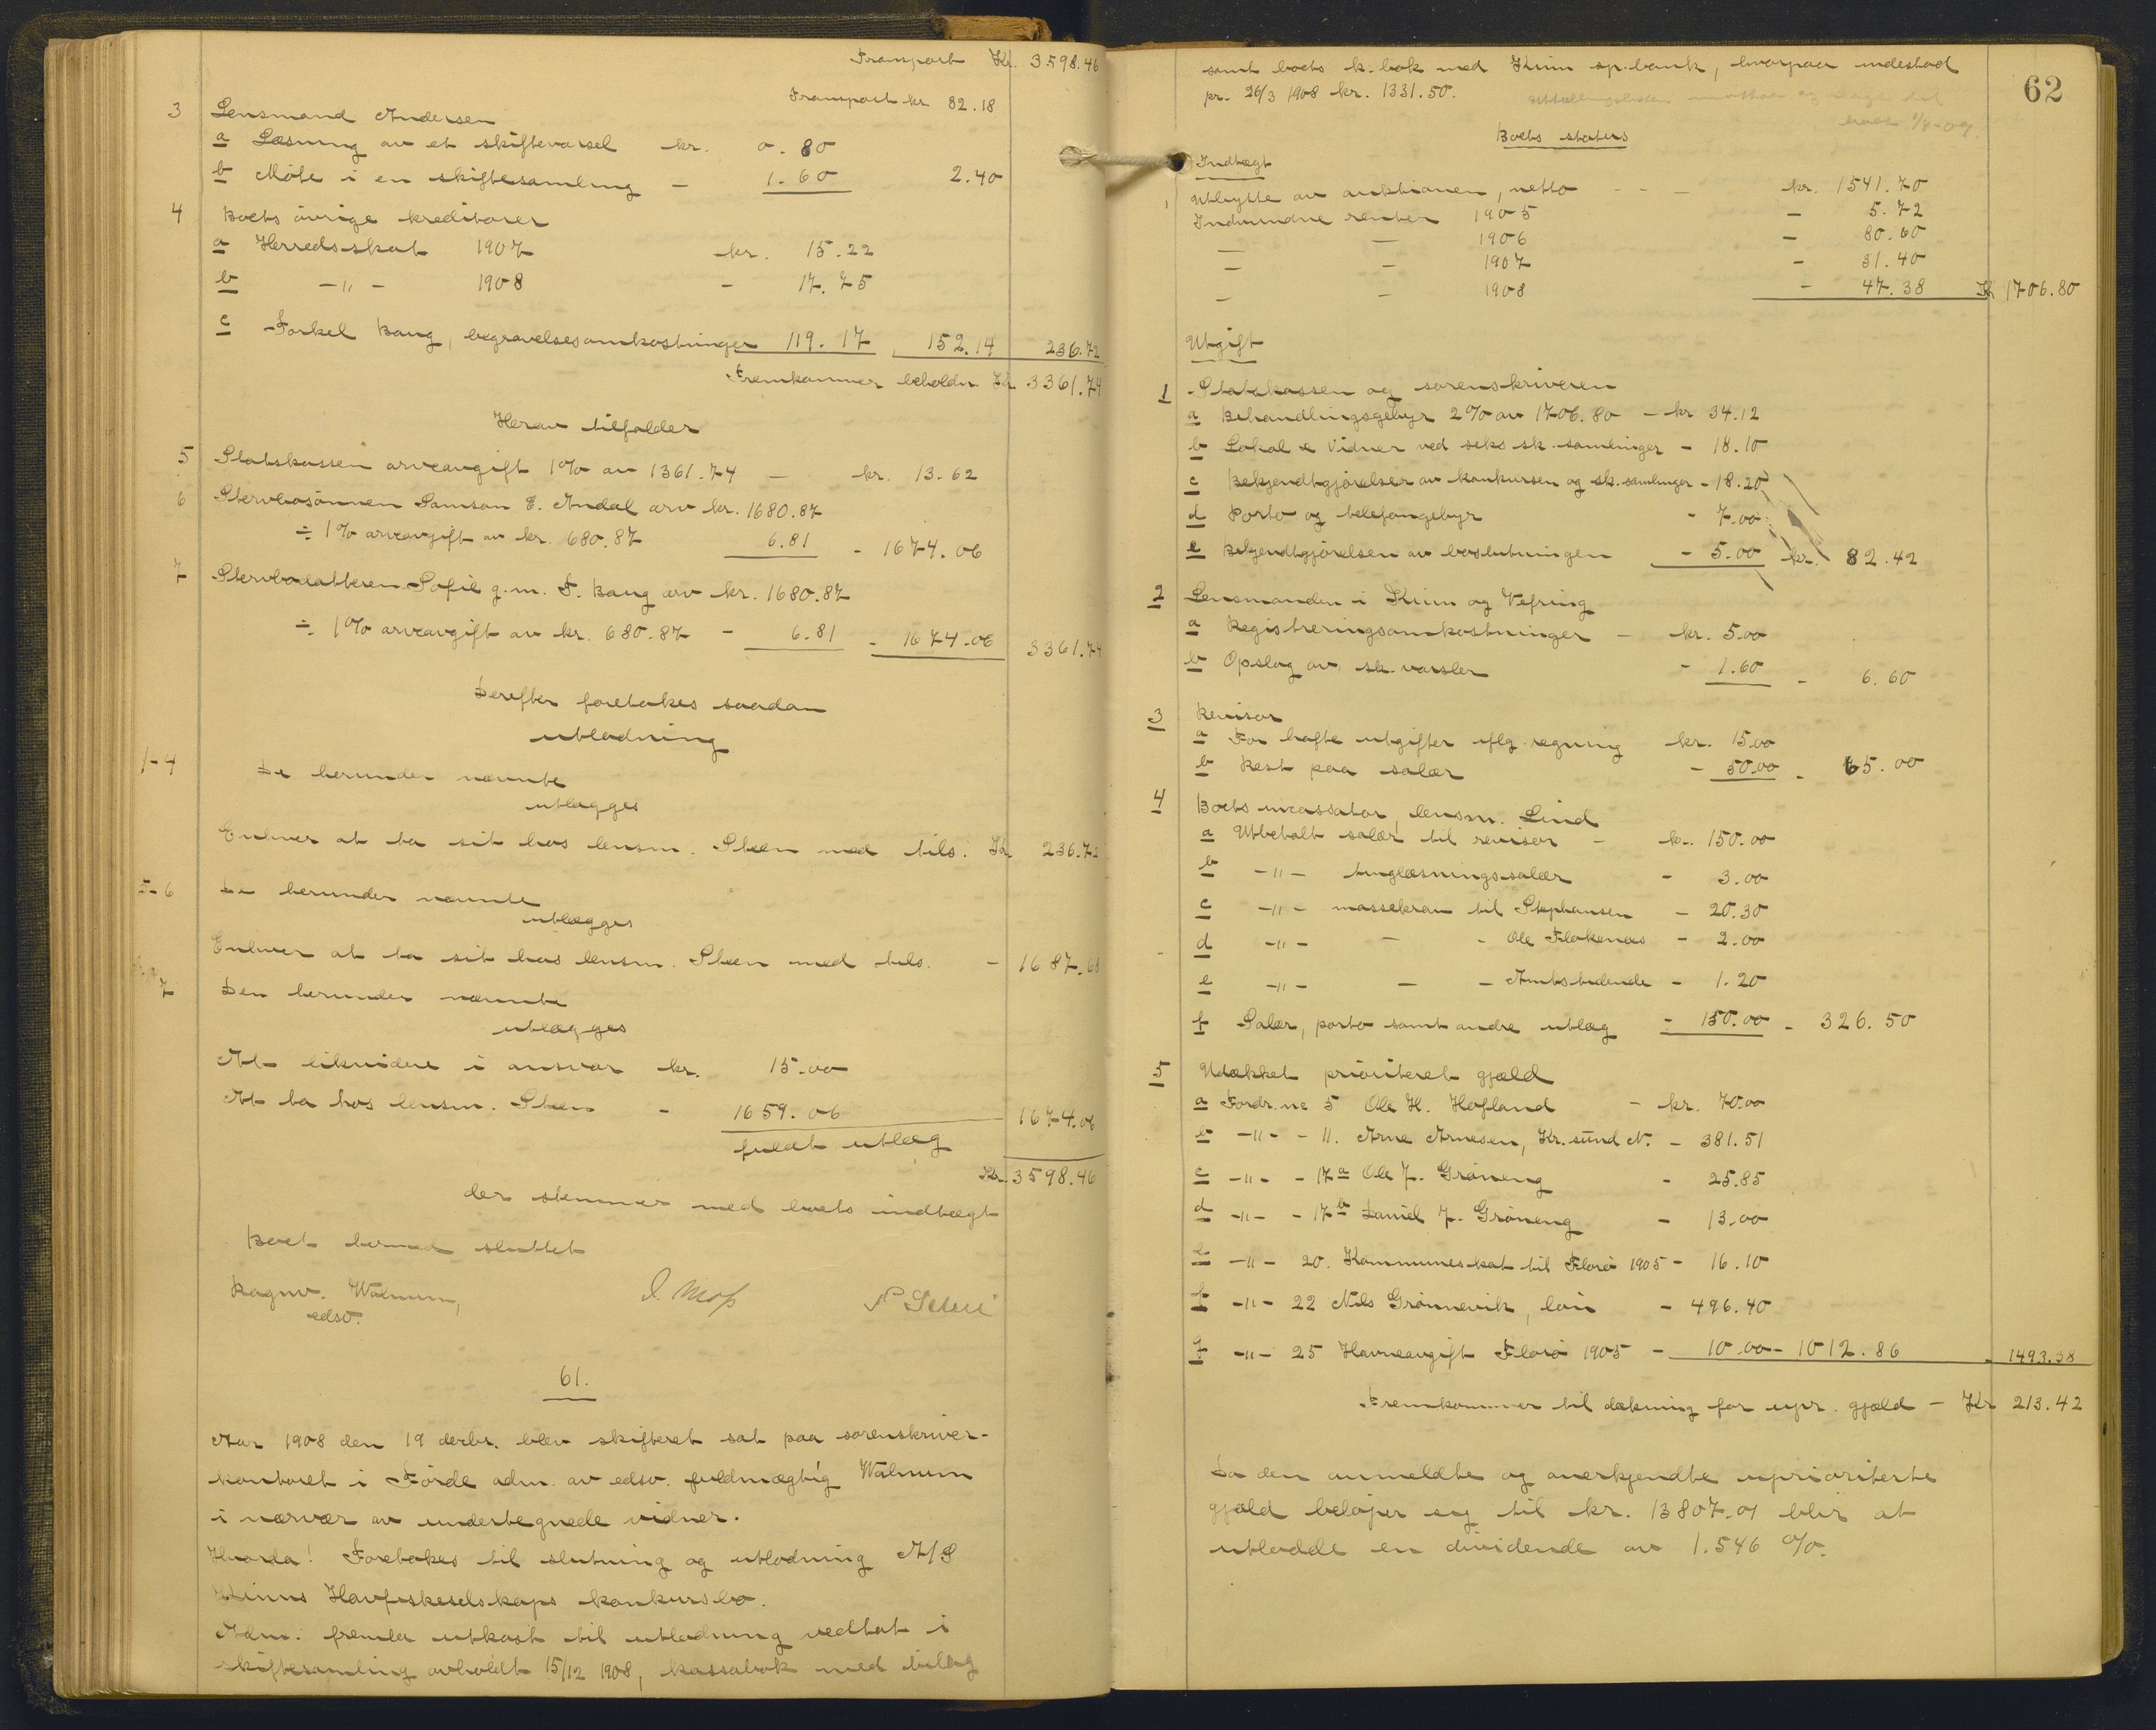 Transport Kr. 3598.46
Transport kr 82.18
3 Lensmand Andersen
a Læsning av et skiftevarsel kr. 0.80
b Møte i en skiftesamling - 1.60 2.40
4 Boets øvrige kreditorer
a Herredsskat 1907 kr. 15.22
b -"- 1908 - 17.75
c Torkel Baug, begravelsesomkostninger 119.17 152.14 236.72
Fremkommer beholdn. Kr 3361.74
Herav tilfalder
5 Statskassen arveavgift 1% av 1361.74 - kr. 13.62
6 Stervbosønnen Samson E. Andal arv kr. 1680.87
÷ 1% arveavgift av kr. 680.87 6.81 - 1674.06
7 Stervbodatteren Sofie g.m. T. Baug arv kr. 1680.87
÷ 1% arveavgift av kr. 680.87 - 6.81 - 1674.06 3361.74
Derefter foretakes saadan
utlodning
1-4 De herunder nævnte
utlægges
Enhver at ta sit hos lensm. Steen med tils. Kr. 236.72
5-6 De herunder nævnte
utlægges
Enhver at ta sit hos lensm. Steen med tils. - 1687.68
7 Den herunder nævnte
utlægges
At likvidere i ansvar kr. 15.00
At ta hos lensm. Steen - 1659.06 1674.06
fuldt utlæg
Kr. 3598.46
der stemmer med boets indtægt
Boet hermed sluttet
Ragnv. Walnum,
edsv.
61.
Aar 1908 den 19 decbr. blev skifteret sat paa sorenskriver-
kontoret i Førde adm. av edsv. fuldmægtig Walnum
i nærvær av undertegnede vidner.
Hvorda! Foretokes til slutning og utlodning A/S
Kinns Havfiskeselskaps konkursbo.
Adm. fremla utkast til utlodning vedtat i
skiftesamling avholdt 15/12 1908, kassabok med bilag
62
samt boets k. bok med Kinn sp.bank, hvorpaa indestod
pr. 26/3 1908 kr. 1331.50.
Boets status
Indtægt
Utbytte av auktionen, netto - - - kr. 1541.70
Indvundne renter 1905 - 5.72
- - 1906 - 80.60
- - 1907 - 31.40
- - 1908 - 47.38 Kr 1706.80
Utgift
1 Statskassen og sorenskriveren
a Behandlingsgebyr 2% av 1706.80 - kr 34.12
b Lokal & Vidner ved seks sk. samlinger - 18.10
c Bekjendtgjørelser av konkursen og sk. samlinger - 18.20
d Porto og telefongebyr - 7.00
e Bekjendtgjørelsen av boslutningen - 5.00 kr. 82.42
2 Lensmanden i Kinn og Vefring
a Registreringsomkostninger - kr. 5.00
b Opslag av sk. varsler - 1.60 - 6.60
3 Revisor
a For hafte utgifter iflg. regning kr. 15.00
b Rest paa salær - 50.00 - 65.00
4 Boets incassator, lensm. Lind
a Utbetalt salær til revisor - kr. 150.00
b -"- tinglæsningssalær - 3.00
c -"- massekrav til Stephansen - 20.30
d -"- - - Ole Flokenes - 2.00
e -"- - - Amtstidende - 1.20
f Salær, porto samt andre utlæg - 150.00 - 326.50
5 Udækket prioriteret gjæld
a Fordr. no 5 Ole H. Hovland - kr. 70.00
b -"- - 11. Arne Arnesen, Kr.sund N. - 381.51
c -"- - 17a Ole J. Grøneng - 25.85
d -"- - 17b Daniel J. Grøneng - 13.00
e -"- 20. Kommuneskat til Florø 1905 - 16.10
f -"- 22 Nils Grønnevik, løn - 496.40
g -"- 25 Havneavgift Florø 1905 - 10.00 - 1012.86 - 1493.38
Fremkommer til dækning for upr. gjæld - Kr 213.42
Da den anmeldte og anerkjendte uprioriterte
gjæld beløper sig til kr. 13807.01 blir at
utlodde en dividende av 1.546 %.